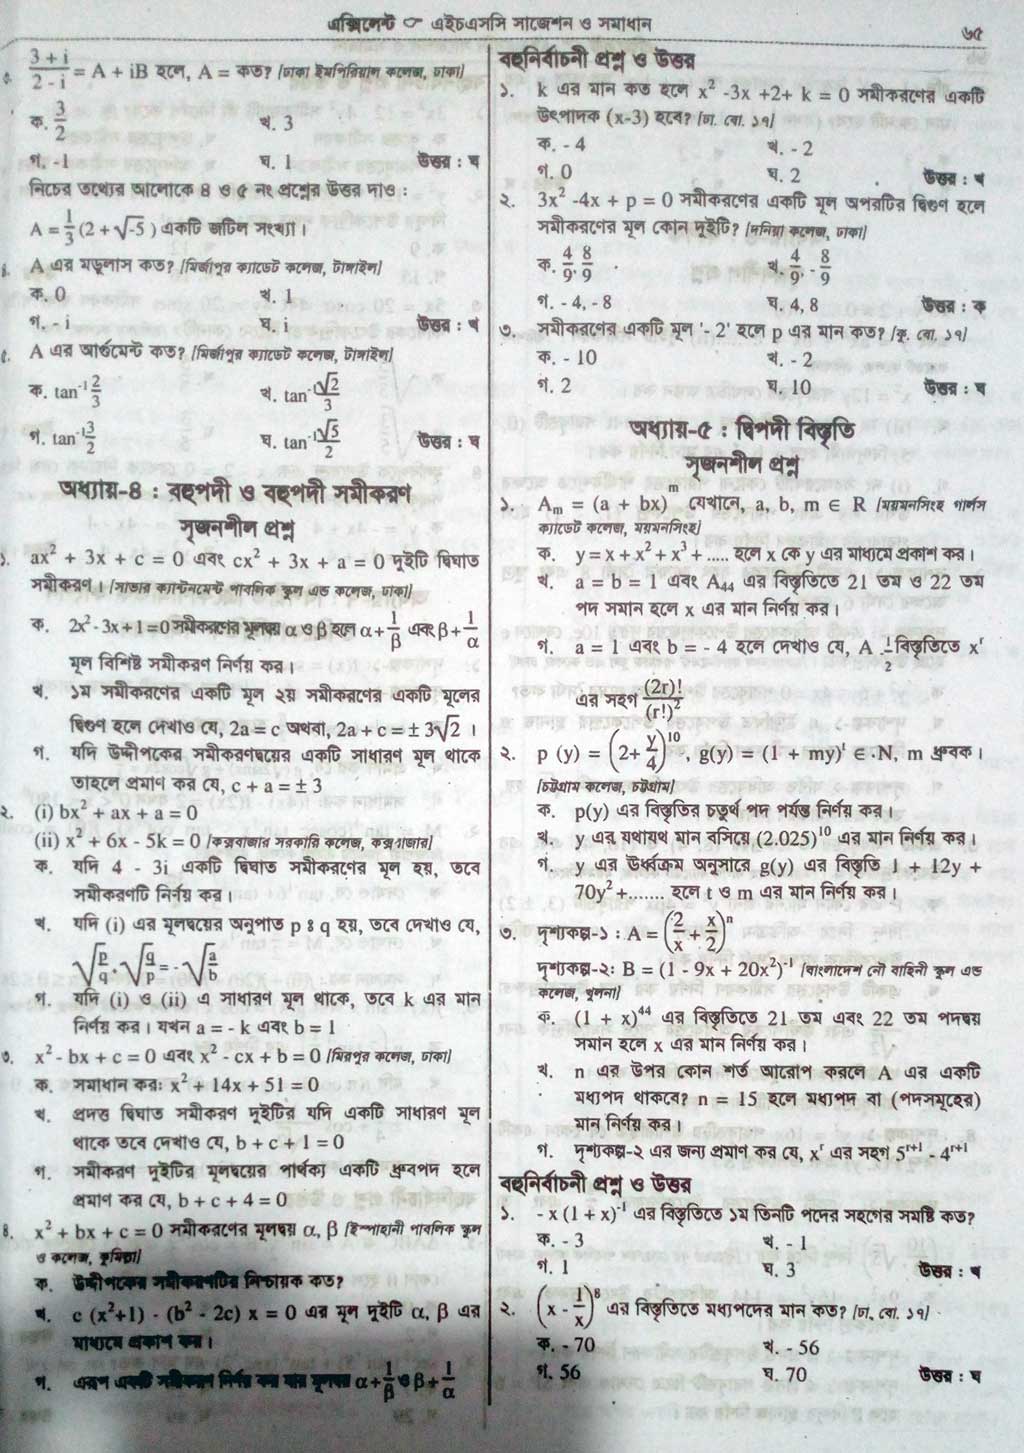 এক্সিলেন্ট ☞ এইচএসসি সাজেশন ও সমাধান
৬৫
৩. (3 + i)/(2 - i) = A + iB হলে, A = কত? [ঢাকা ইমপিরিয়াল কলেজ, ঢাকা]
ক. 3/2 খ. 3
গ. -1 ঘ. 1 উত্তর : ঘ
নিচের তথ্যের আলোকে ৪ ও ৫ নং প্রশ্নের উত্তর দাও :
A = 1/3 (2 + √-5) একটি জটিল সংখ্যা।
৪. A এর মডুলাস কত? [মির্জাপুর ক্যাডেট কলেজ, টাঙ্গাইল]
ক. 0 খ. 1
গ. - i ঘ. i উত্তর : খ
৫. A এর আর্গুমেন্ট কত? [মির্জাপুর ক্যাডেট কলেজ, টাঙ্গাইল]
ক. tan⁻¹ 2/3 খ. tan⁻¹ √2/3
গ. tan⁻¹ 3/2 ঘ. tan⁻¹ √5/2 উত্তর : ঘ
অধ্যায়-৪ : বহুপদী ও বহুপদী সমীকরণ
সৃজনশীল প্রশ্ন
১. ax² + 3x + c = 0 এবং cx² + 3x + a = 0 দুইটি দ্বিঘাত
সমীকরণ। [সাভার ক্যান্টনমেন্ট পাবলিক স্কুল এন্ড কলেজ, ঢাকা]
ক. 2x² - 3x + 1 = 0 সমীকরণের মূলদ্বয় α ও β হলে α + 1/β এবং β + 1/α
মূল বিশিষ্ট সমীকরণ নির্ণয় কর।
খ. ১ম সমীকরণের একটি মূল ২য় সমীকরণের একটি মূলের
দ্বিগুণ হলে দেখাও যে, 2a = c অথবা, 2a + c = ± 3√2 ।
গ. যদি উদ্দীপকের সমীকরণদ্বয়ের একটি সাধারণ মূল থাকে
তাহলে প্রমাণ কর যে, c + a = ± 3
২. (i) bx² + ax + a = 0
(ii) x² + 6x - 5k = 0 [কক্সবাজার সরকারি কলেজ, কক্সবাজার]
ক. যদি 4 - 3i একটি দ্বিঘাত সমীকরণের মূল হয়, তবে
সমীকরণটি নির্ণয় কর।
খ. যদি (i) এর মূলদ্বয়ের অনুপাত p ঃ q হয়, তবে দেখাও যে,
√(p/q) + √(q/p) = - √(a/b)
গ. যদি (i) ও (ii) এ সাধারণ মূল থাকে, তবে k এর মান
নির্ণয় কর। যখন a = - k এবং b = 1
৩. x² - bx + c = 0 এবং x² - cx + b = 0 [মিরপুর কলেজ, ঢাকা]
ক. সমাধান করঃ x² + 14x + 51 = 0
খ. প্রদত্ত দ্বিঘাত সমীকরণ দুইটির যদি একটি সাধারণ মূল
থাকে তবে দেখাও যে, b + c + 1 = 0
গ. সমীকরণ দুইটির মূলদ্বয়ের পার্থক্য একটি ধ্রুবপদ হলে
প্রমাণ কর যে, b + c + 4 = 0
৪. x² + bx + c = 0 সমীকরণের মূলদ্বয় α, β [ইস্পাহানী পাবলিক স্কুল
ও কলেজ, কুমিল্লা]
ক. উদ্দীপকের সমীকরণটির নিশ্চায়ক কত?
খ. c (x²+1) - (b² - 2c) x = 0 এর মূল দুইটি α, β এর
মাধ্যমে প্রকাশ কর।
গ. এরূপ একটি সমীকরণ নির্ণয় কর যার মূলদ্বয় α + 1/β ও β + 1/α
বহুনির্বাচনী প্রশ্ন ও উত্তর
১. k এর মান কত হলে x² -3x +2+ k = 0 সমীকরণের একটি
উৎপাদক (x-3) হবে? [ঢা. বো. ১৭]
ক. - 4 খ. - 2
গ. 0 ঘ. 2 উত্তর : খ
২. 3x² -4x + p = 0 সমীকরণের একটি মূল অপরটির দ্বিগুণ হলে
সমীকরণের মূল কোন দুইটি? [দনিয়া কলেজ, ঢাকা]
ক. 4/9, 8/9 খ. 4/9, - 8/9
গ. - 4, - 8 ঘ. 4, 8 উত্তর : ক
৩. সমীকরণের একটি মূল '- 2' হলে p এর মান কত? [কু. বো. ১৭]
ক. - 10 খ. - 2
গ. 2 ঘ. 10 উত্তর : ঘ
অধ্যায়-৫ : দ্বিপদী বিস্তৃতি
সৃজনশীল প্রশ্ন
১. Aₘ = (a + bx)ᵐ যেখানে, a, b, m ∈ R [ময়মনসিংহ গার্লস
ক্যাডেট কলেজ, ময়মনসিংহ]
ক. y = x + x² + x³ + ..... হলে x কে y এর মাধ্যমে প্রকাশ কর।
খ. a = b = 1 এবং A₄₄ এর বিস্তৃতিতে 21 তম ও 22 তম
পদ সমান হলে x এর মান নির্ণয় কর।
গ. a = 1 এবং b = - 4 হলে দেখাও যে, A ₋₁⁄₂ বিস্তৃতিতে xʳ
এর সহগ (2r)!/(r!)²
২. p (y) = (2 + y/4)¹⁰, g(y) = (1 + my)ᵗ ∈ .N, m ধ্রুবক।
[চট্টগ্রাম কলেজ, চট্টগ্রাম]
ক. p(y) এর বিস্তৃতির চতুর্থ পদ পর্যন্ত নির্ণয় কর।
খ. y এর যথাযথ মান বসিয়ে (2.025)¹⁰ এর মান নির্ণয় কর।
গ. y এর ঊর্ধ্বক্রম অনুসারে g(y) এর বিস্তৃতি 1 + 12y +
70y² +....... হলে t ও m এর মান নির্ণয় কর।
৩. দৃশ্যকল্প-১ : A = (2/x + x/2)ⁿ
দৃশ্যকল্প-২ঃ B = (1 - 9x + 20x²)⁻¹ [বাংলাদেশ নৌ বাহিনী স্কুল এন্ড
কলেজ, খুলনা]
ক. (1 + x)⁴⁴ এর বিস্তৃতিতে 21 তম এবং 22 তম পদদ্বয়
সমান হলে x এর মান নির্ণয় কর।
খ. n এর উপর কোন শর্ত আরোপ করলে A এর একটি
মধ্যপদ থাকবে? n = 15 হলে মধ্যপদ বা (পদসমূহের)
মান নির্ণয় কর।
গ. দৃশ্যকল্প-২ এর জন্য প্রমাণ কর যে, xʳ এর সহগ 5ʳ⁺¹ - 4ʳ⁺¹
বহুনির্বাচনী প্রশ্ন ও উত্তর
১. - x (1 + x)⁻¹ এর বিস্তৃতিতে ১ম তিনটি পদের সহগের সমষ্টি কত?
ক. - 3 খ. - 1
গ. 1 ঘ. 3 উত্তর : খ
২. (x - 1/x)⁸ এর বিস্তৃতিতে মধ্যপদের মান কত? [ঢা. বো. ১৭]
ক. - 70 খ. - 56
গ. 56 ঘ. 70 উত্তর : ঘ